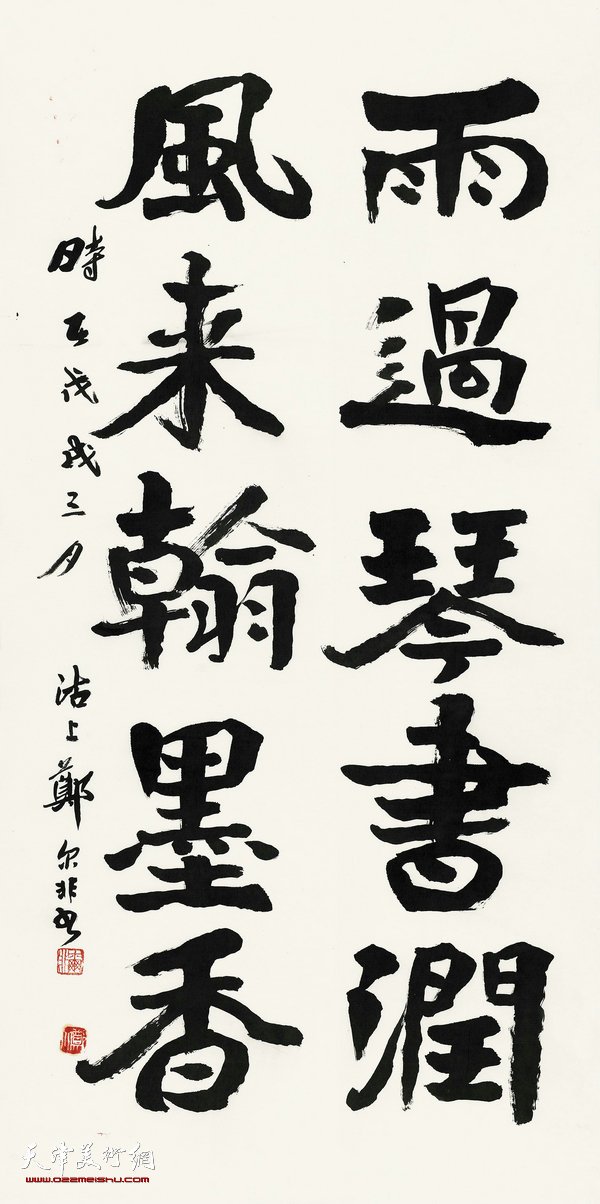 雨過琴書潤
風来翰墨香
時在戊戌三月 沽上鄭尔非書
天津美術網
www.022meishu.com